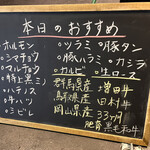 本日のおすすめ
ホルモン
・シマチョウ
・マルチョウ
・特上ミノ
・ハチノス
・牛ハツ
・シビレ
・ツラミ
・豚タン
・豚ハラミ
・カシラ
・カルビ
・生ロース
群馬県産 増田牛
鳥取県産 田村牛
岡山県産 33ヶ月
肥育 黒毛和牛